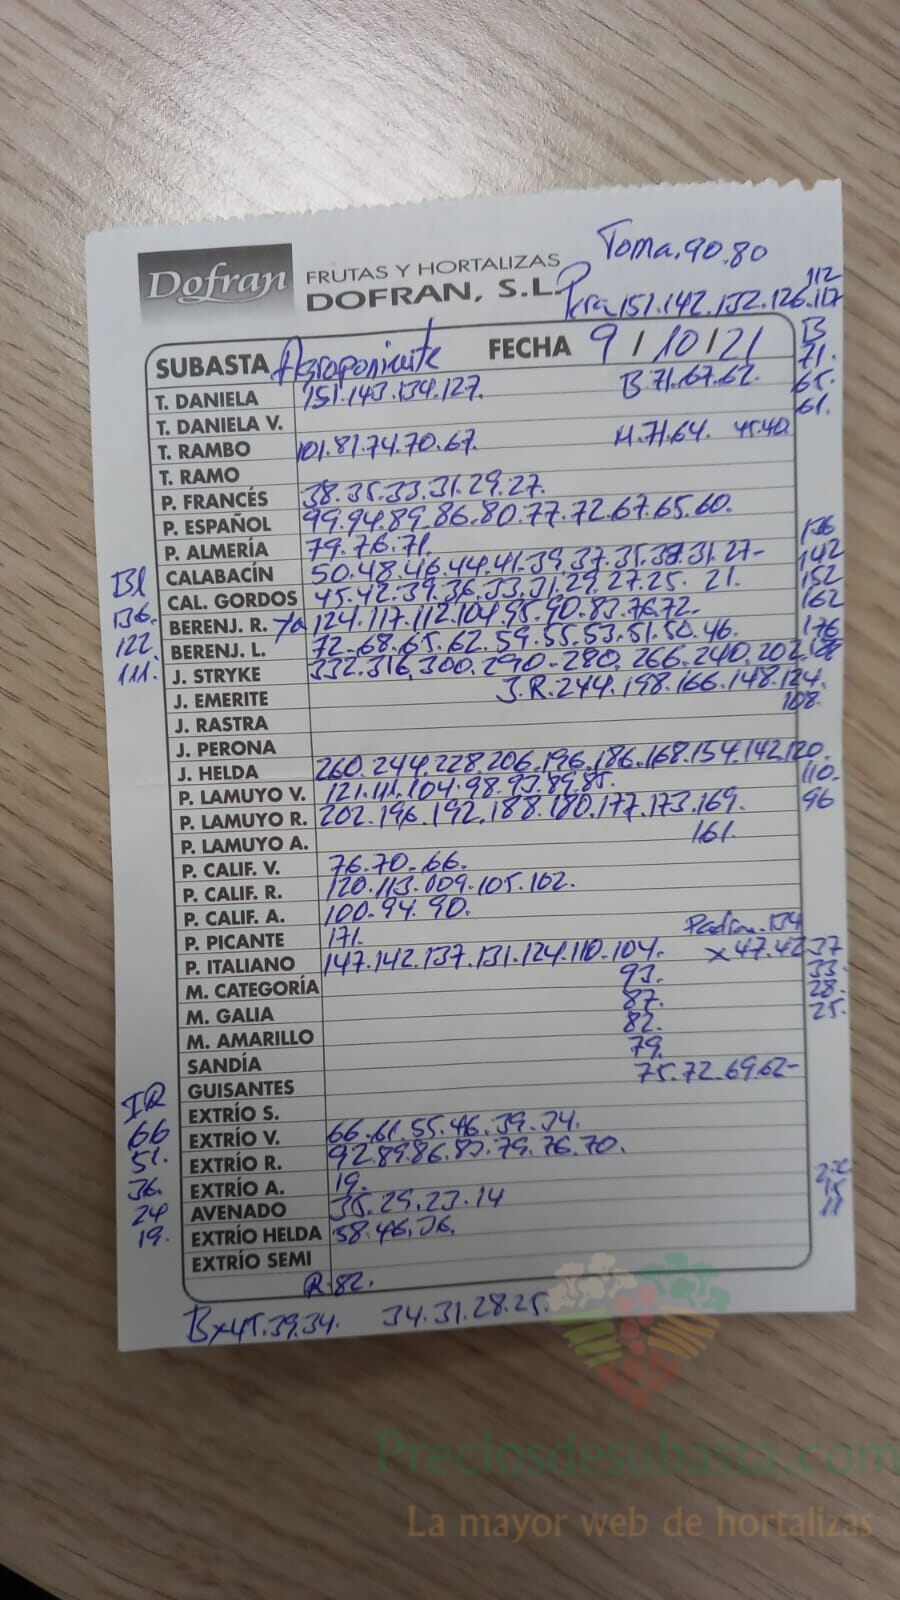 Toma.90.80
Dofran FRUTAS Y HORTALIZAS
DOFRAN, S.L.
Pera 151.142.132.126.117
112
SUBASTA Agroponiente FECHA 9/10/21
B
71.
65.
61.
T. DANIELA 151.143.134.127. B.71.67.62.
T. DANIELA V.
T. RAMBO 101.81.74.70.67. H.71.64. 45.40.
T. RAMO
P. FRANCÉS 38.35.33.31.29.27.
P. ESPAÑOL 99.94.89.86.80.77.72.67.65.60.
P. ALMERÍA 79.76.71.
CALABACÍN 50.48.46.44.41.39.37.35.33.31.27-
CAL. GORDOS 45.42.39.36.33.31.29.27.25. 21.
BERENJ. R. 124.117.112.104.95.90.83.76.72.
BERENJ. L. 72-68.65.62.59.55.53.51.50.46.
Bl
136.
122.
111.
136
142
152
162
176
J. STRYKE 332.316.300.290-280.266.240.202.
J. EMERITE J.R.244.198.166.148.124.
108.
J. RASTRA
J. PERONA
J. HELDA 260.244.228.206.196.186.168.154.142.120.
110.
96
P. LAMUYO V. 121.111.104.98.93.89.85.
P. LAMUYO R. 202.196.192.188.180.177.173.169.
161.
P. LAMUYO A.
P. CALIF. V. 76.70.66.
P. CALIF. R. 120.113.009.105.102.
P. CALIF. A. 100.94.90.
P. PICANTE 171. Padron.134
P. ITALIANO 147.142.137.131.124.110.104. x47.42.37
93.
87.
82.
79.
75.72.69.62-
33.
28.
25.
M. CATEGORÍA
M. GALIA
M. AMARILLO
SANDÍA
GUISANTES
EXTRÍO S.
EXTRÍO V. 66.61.55.46.39.34.
EXTRÍO R. 92.89.86.83.79.76.70.
EXTRÍO A. 19.
AVENADO 35.29.23.14
EXTRÍO HELDA 58.46.36.
EXTRÍO SEMI
66
51.
36.
24
19.
15
11
R.82.
Bx45.39.34. 34.31.28.25.
Preciosdesubasta.com
La mayor web de hortalizas